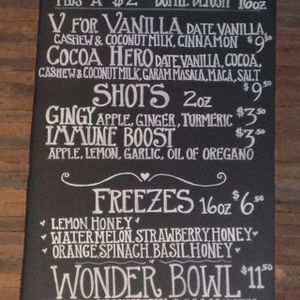 PLUS A $2 BOTTLE DEPOSIT 16oz
V FOR VANILLA DATE, VANILLA,
CASHEW & COCONUT MILK, CINNAMON $9.50
COCOA HERO DATE, VANILLA, COCOA,
CASHEW & COCONUT MILK, GARAM MASALA, MACA, SALT
$9.50
SHOTS 2oz
GINGY APPLE, GINGER, TURMERIC $3.50
IMMUNE BOOST $3.50
APPLE, LEMON, GARLIC, OIL OF OREGANO
FREEZES 16oz $6.50
LEMON HONEY
WATERMELON, STRAWBERRY, HONEY
ORANGE, SPINACH, BASIL, HONEY
WONDER BOWL $11.50